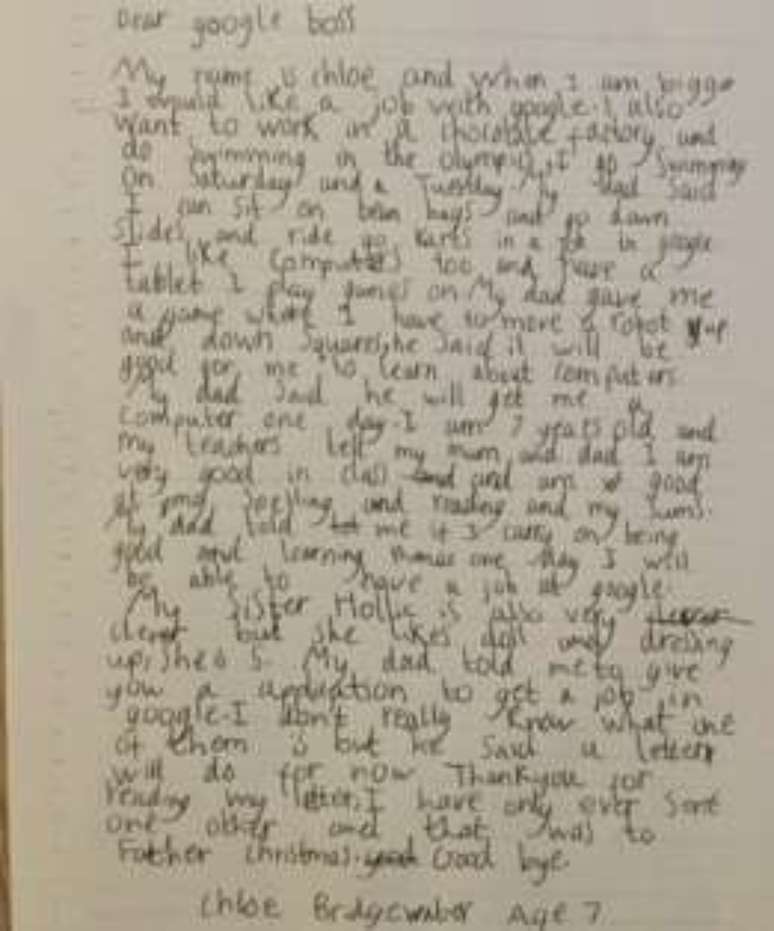 Dear google boss
My name is Chloe and when I am bigger
I would like a job with google. I also
want to work in a chocolate factory and
do swimming in the olympics. I go Swimming
on Saturday and a Tuesday. My dad said
I can sit on bean bags and go down
slides and ride go karts in a job in google.
I like computers too and have a
tablet I play games on. My dad gave me
a game where I have to move a robot up
and down squares, he said it will be
good for me to learn about computers.
My dad said he will get me a
computer one day. I am 7 years old and
my teachers tell my mum and dad I am
very good in class and am good
at my spelling and reading and my sums.
My dad told me if I carry on being
good and learning things one day I will
be able to have a job at google.
My sister Hollie is also very
clever but she likes doll and dressing
up, she is 5. My dad told me to give
you a application to get a job in
google. I don't really know what one
of them is but he said a letter
will do for now. Thankyou for
reading my letter, I have only ever sent
one other and that was to
Father Christmas. Good bye.
Chloe Bridgewater Age 7